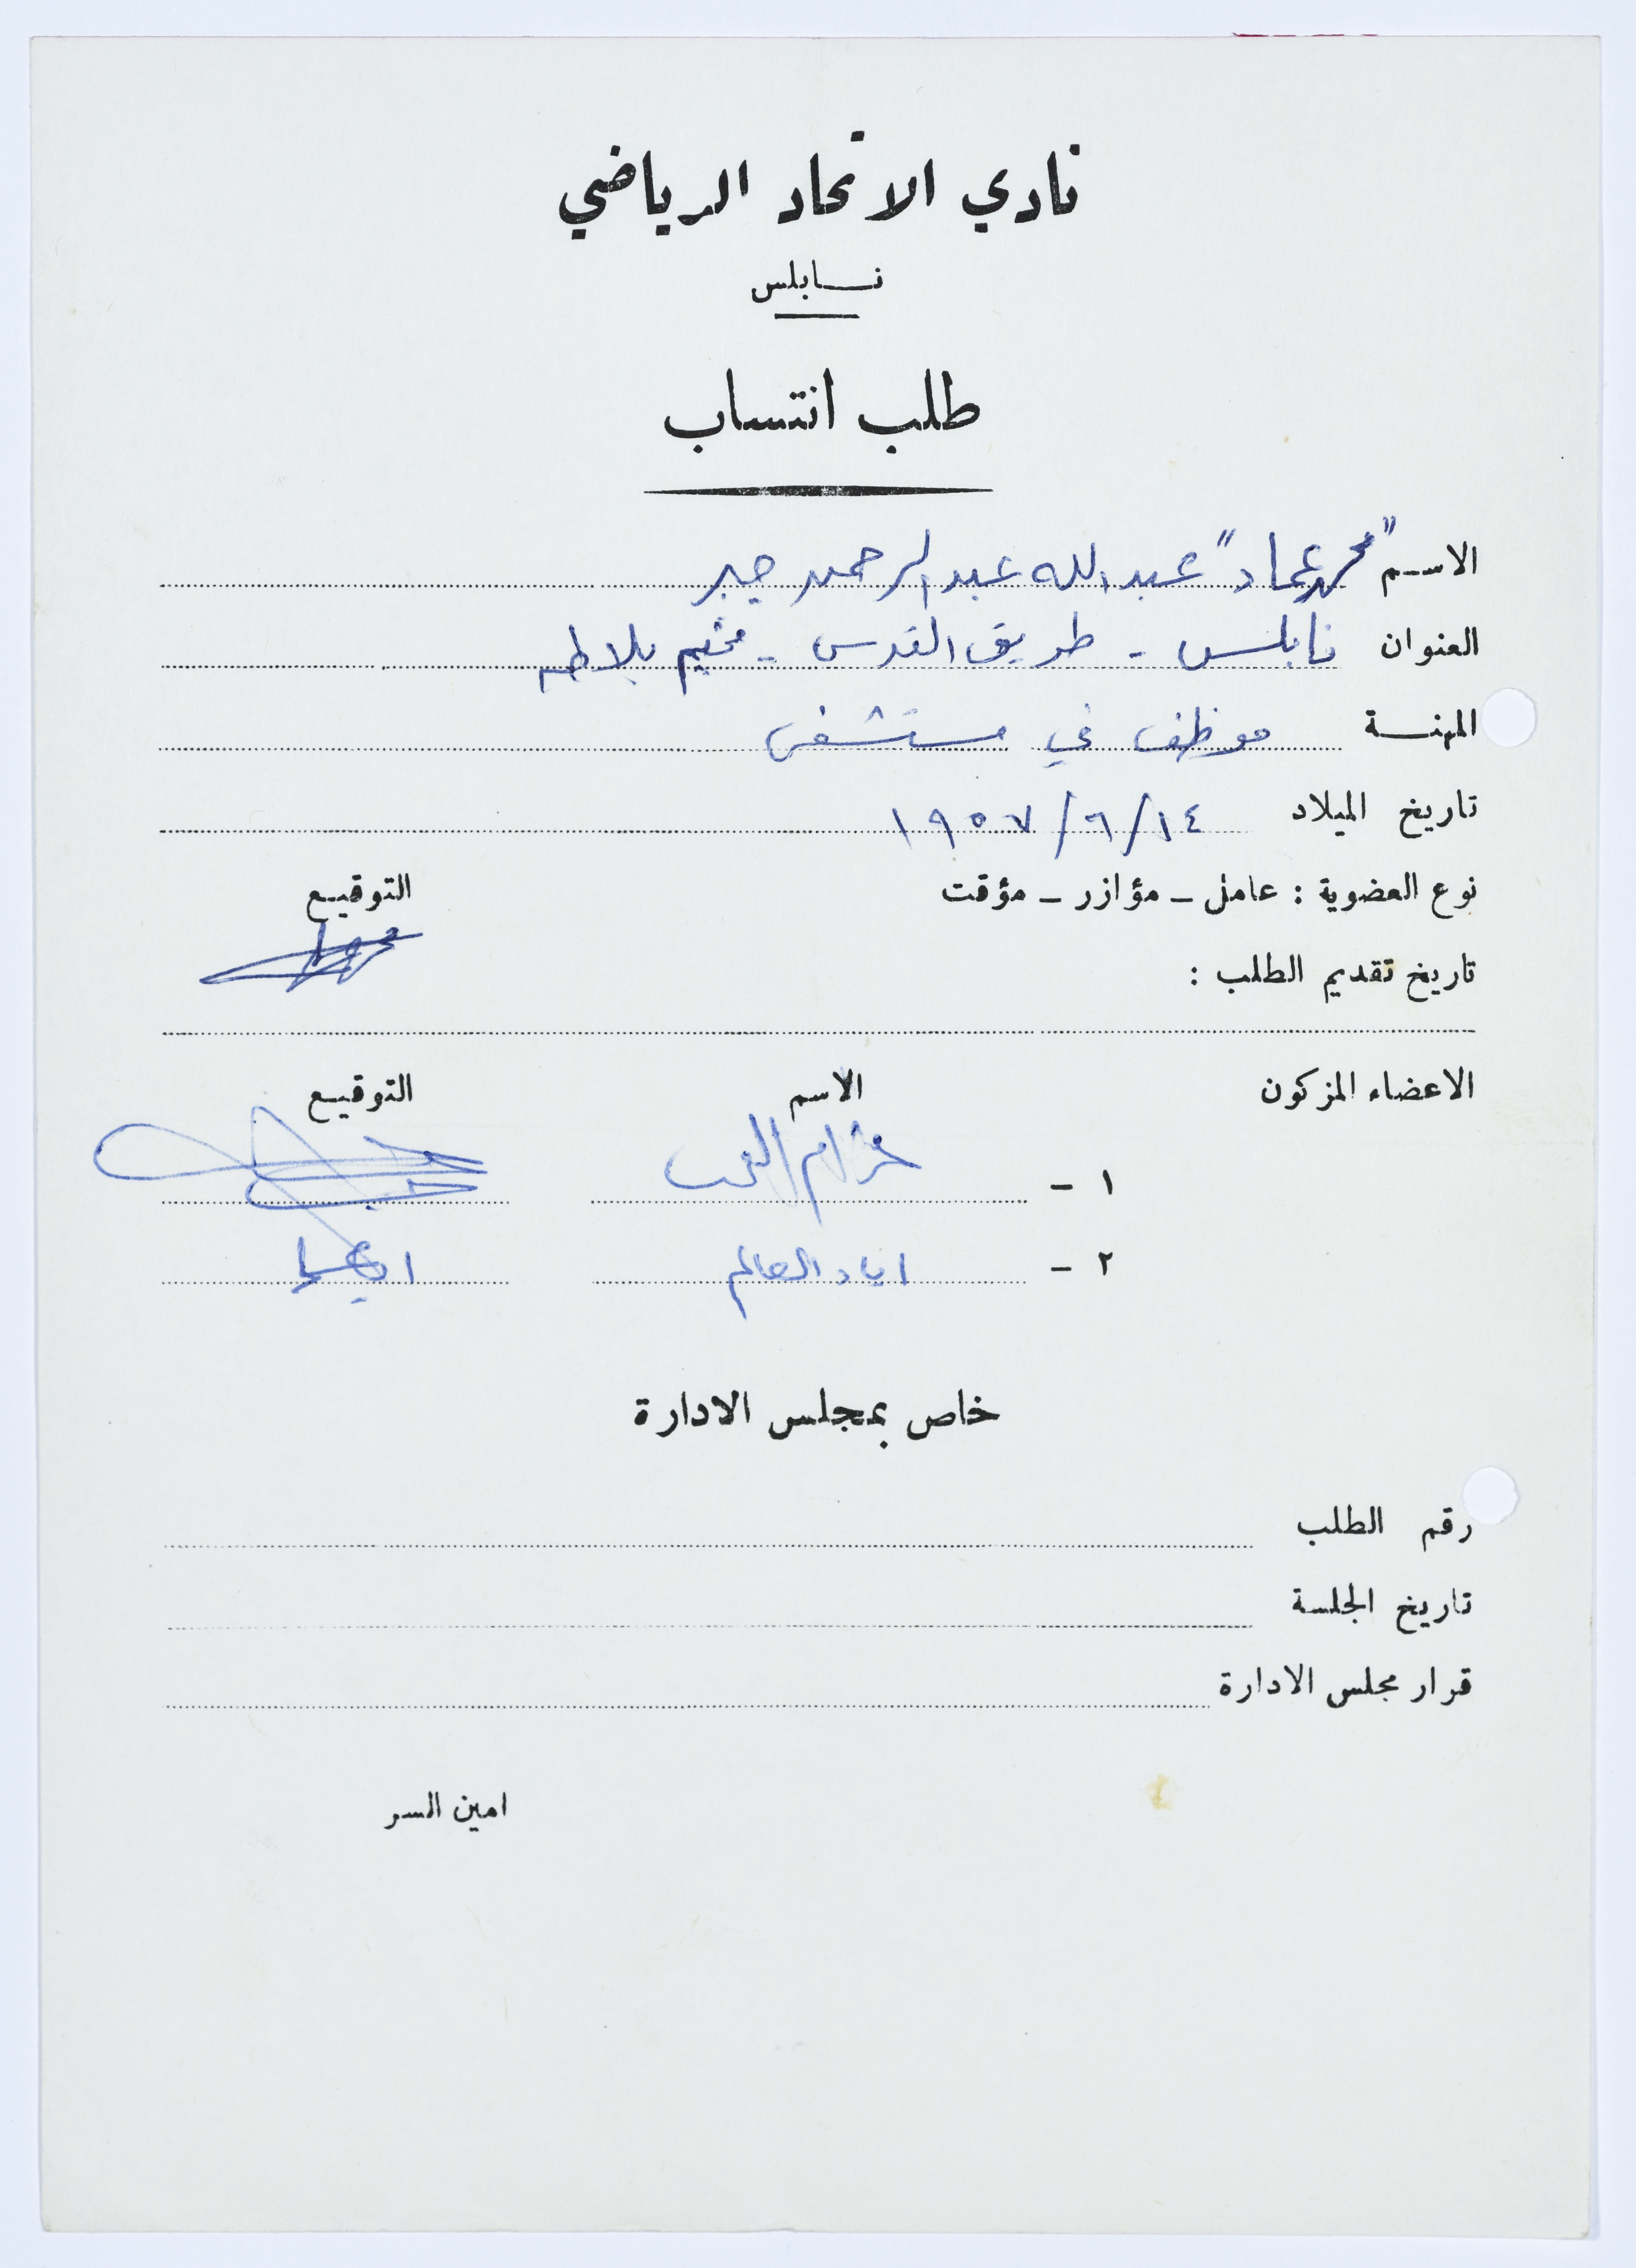 نادي الاتحاد الرياضي
نابلس
طلب انتساب
الاسم "محمد عماد" عبد الله عبد الرحمن جبر
العنوان نابلس - طريق القدس - مخيم بلاطه
المهنة موظف في مستشفى
تاريخ الميلاد ١٤/٦/١٩٥٧
نوع العضوية : عامل - مؤازر - مؤقت التوقيع
تاريخ تقديم الطلب :
الاعضاء المزكون الاسم التوقيع
١ -
٢ - اياد العالم
خاص بمجلس الادارة
رقم الطلب
تاريخ الجلسة
قرار مجلس الادارة
امين السر